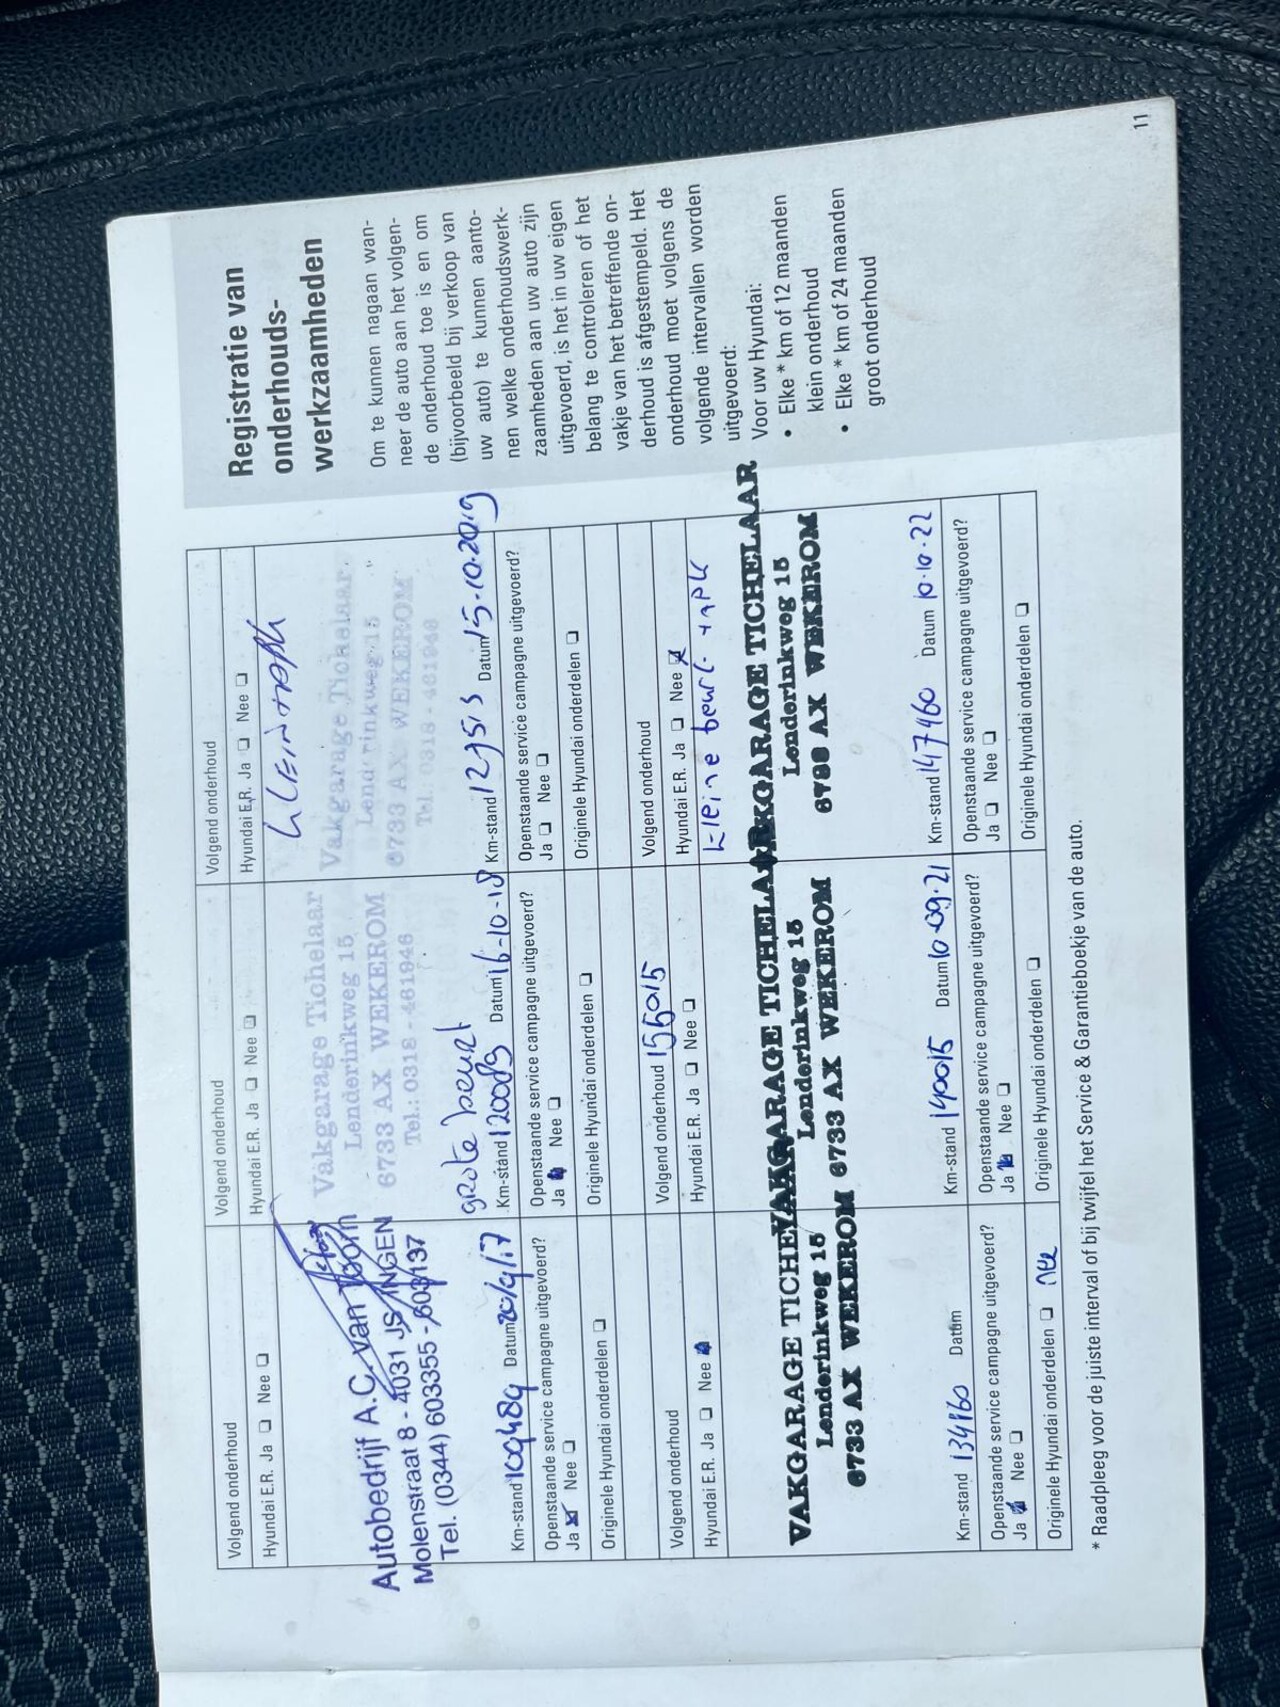 Volgend onderhoud
Hyundai E.R. Ja ❏ Nee ❏
Autobedrijf A.C. van Toorn
Molenstraat 8 - 4031 JS INGEN
Tel. (0344) 603355 - 603137
Km-stand 109489 Datum 20/9/17
Openstaande service campagne uitgevoerd?
Ja ❏ Nee ❏
Originele Hyundai onderdelen ❏
Volgend onderhoud
Hyundai E.R. Ja ❏ Nee ❏
Vakgarage Tichelaar
Lenderinkweg 15
6733 AX WEKEROM
Tel.: 0318 - 461946
grote beurt
Km-stand 120089 Datum 16-10-18
Openstaande service campagne uitgevoerd?
Ja ❏ Nee ❏
Originele Hyundai onderdelen ❏
Volgend onderhoud
Hyundai E.R. Ja ❏ Nee ❏
Vakgarage Tichelaar
Lenderinkweg 15
6733 AX WEKEROM
Tel.: 0318 - 461946
Km-stand 129513 Datum 15-10-2019
Openstaande service campagne uitgevoerd?
Ja ❏ Nee ❏
Originele Hyundai onderdelen ❏
Volgend onderhoud
Hyundai E.R. Ja ❏ Nee ❏
VAKGARAGE TICHE
Lenderinkweg 15
6733 AX WEKEROM
Km-stand 134960 Datum
Openstaande service campagne uitgevoerd?
Ja ❏ Nee ❏
Originele Hyundai onderdelen ❏ nee
Volgend onderhoud 155015
Hyundai E.R. Ja ❏ Nee ❏
VAKGARAGE TICHELA
Lenderinkweg 15
6733 AX WEKEROM
Km-stand 140015 Datum 10-09-21
Openstaande service campagne uitgevoerd?
Ja ❏ Nee ❏
Originele Hyundai onderdelen ❏
Volgend onderhoud
Hyundai E.R. Ja ❏ Nee ❏
kleine beurt + apk
VAKGARAGE TICHELAAR
Lenderinkweg 15
6733 AX WEKEROM
Km-stand 147460 Datum 10-10-22
Openstaande service campagne uitgevoerd?
Ja ❏ Nee ❏
Originele Hyundai onderdelen ❏
* Raadpleeg voor de juiste interval of bij twijfel het Service & Garantieboekje van de auto.
Registratie van
onderhouds-
werkzaamheden
Om te kunnen nagaan wan-
neer de auto aan het volgen-
de onderhoud toe is en om
(bijvoorbeeld bij verkoop van
uw auto) te kunnen aanto-
nen welke onderhoudswerk-
zaamheden aan uw auto zijn
uitgevoerd, is het in uw eigen
belang te controleren of het
vakje van het betreffende on-
derhoud is afgestempeld. Het
onderhoud moet volgens de
volgende intervallen worden
uitgevoerd:
Voor uw Hyundai:
• Elke * km of 12 maanden
klein onderhoud
• Elke * km of 24 maanden
groot onderhoud
11